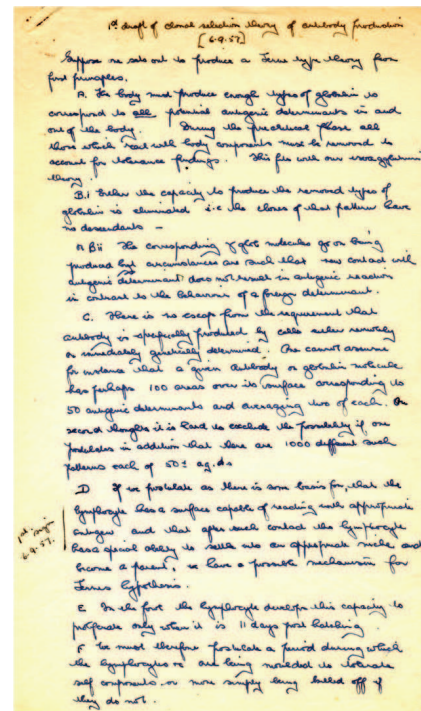 1st draft of clonal selection theory of antibody production
[6.9.57]
Suppose we sets out to produce a Jerne type theory from
first principles.
A. The body must produce enough types of globulin to
correspond to all potential antigenic determinants in and
out of the body. During the prenatal phase all
those which react with body components must be removed to
account for tolerance findings. This fits with our
theory.
B.i Either the capacity to produce the removed types of
globulin is eliminated i.e. the clones of that pattern have
no descendants –
or Bii The corresponding γ glob molecules go on being
produced but circumstances are such that new contact with
antigenic determinant does not result in antigenic reaction
in contrast to the behaviour of a foreign determinant.
C. There is no escape from the requirement that
antibody is specifically produced by cells either remotely
or immediately genetically determined. One cannot assume
for instance that a given antibody or globulin molecule
has perhaps 100 areas over its surface corresponding to
50 antigenic determinants and averaging two of each. On
second thoughts it is hard to exclude the possibility if one
postulates in addition that there are 1000 different such
patterns each of 50± ag. ds
D If we postulate as there is some basis for, that the
lymphocyte has a surface capable of reacting with appropriate
antigen and that after such contact the lymphocyte
has a special ability to settle into an appropriate niche and
become a parent, we have a possible mechanism for
Jernes hypothesis.
6.9.57.
E In the fowl the lymphocyte develops this capacity to
proliferate only when it is 11 days post hatching.
F We must therefore postulate a period during which
the lymphocytes are being moulded to tolerate
self components or more simply being killed off if
they do not.